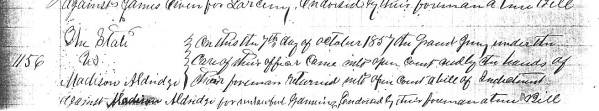 against James Given for Larceny, Endorsed by their foreman a true Bill
The State } On this the 7th day of October 1857 the Grand Jury under the
1156 vs } Care of their officer Came into open Court and by the hands of
Madison Aldridge } their foreman returned into open Court a bill of Indictment
against Madison Aldridge for unlawful Gaming, Endorsed by their foreman a true Bill